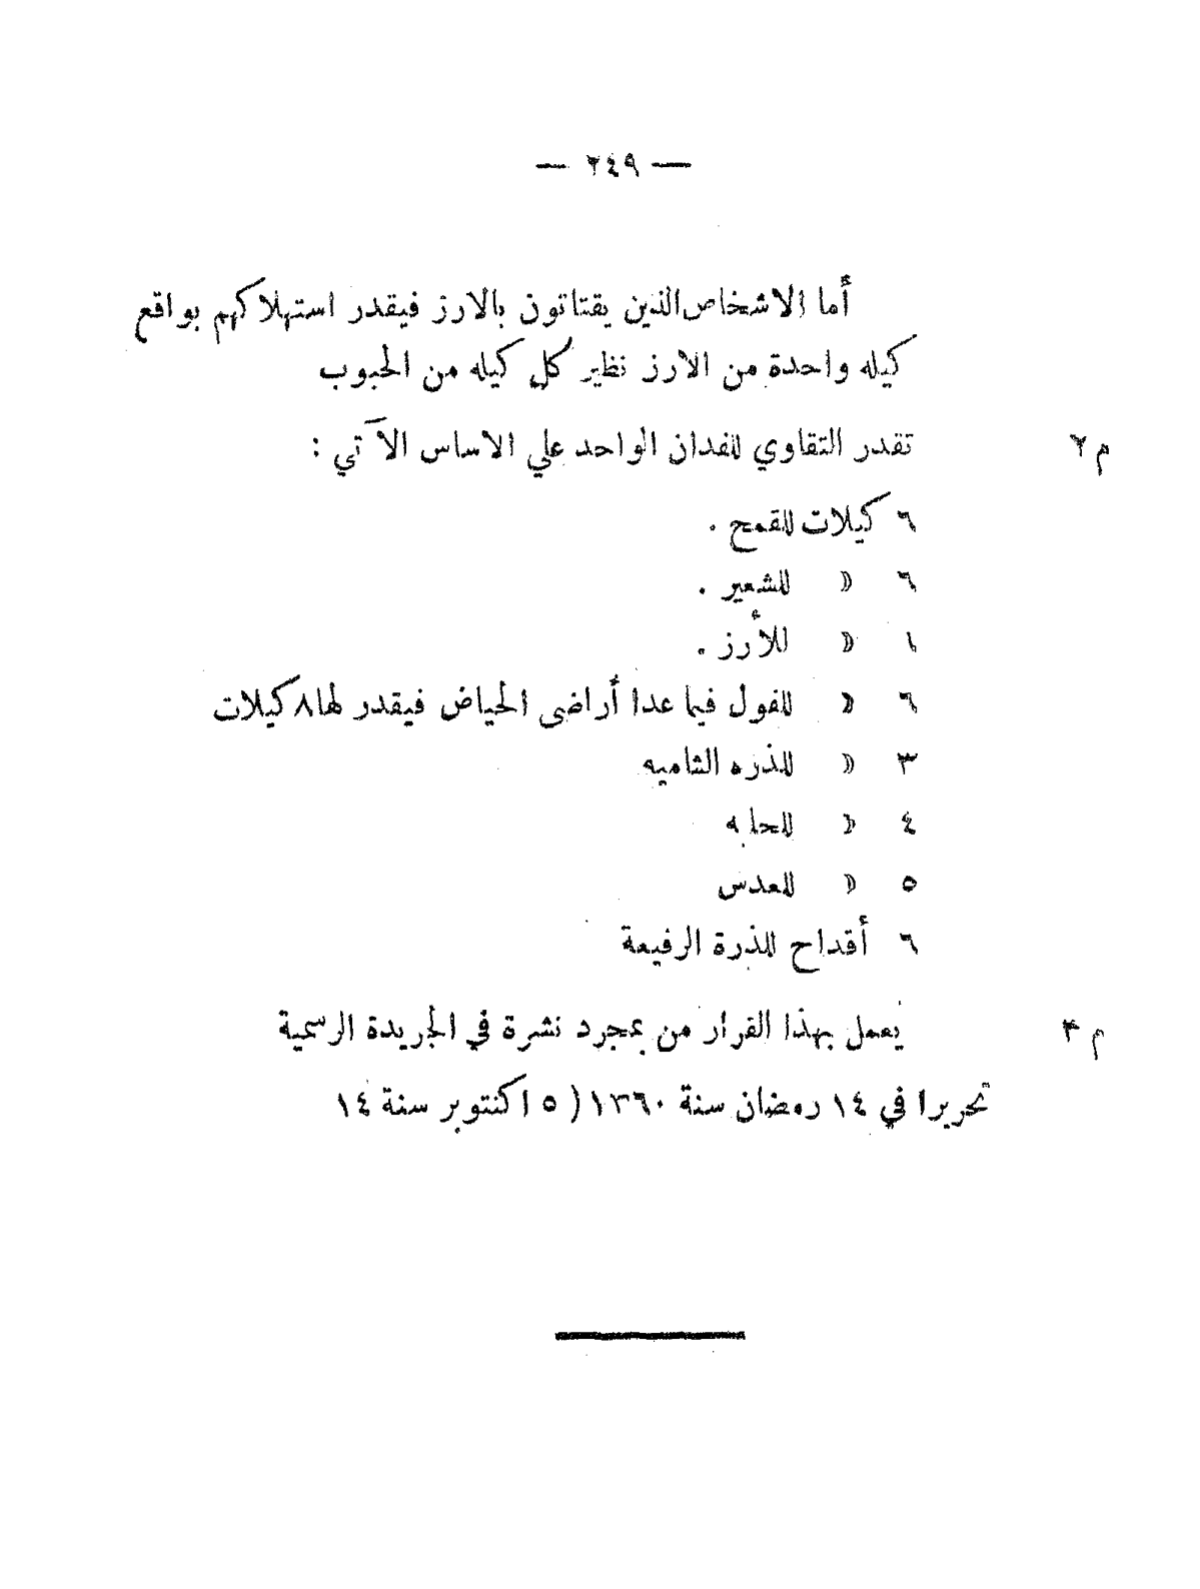 — ٢٤٩ —
أما الاشخاص الذين يقتاتون بالارز فيقدر استهلاكهم بواقع
كيله واحدة من الارز نظير كل كيله من الحبوب
م ٢ تقدر التقاوي للفدان الواحد علي الاساس الآتي :
٦ كيلات للقمح .
٦ » للشعير .
١ » للأرز .
٦ » للفول فيما عدا أراضى الحياض فيقدر لها ٨ كيلات
٣ » للذره الشاميه
٤ » للحلبه
٥ » للعدس
٦ أقداح للذرة الرفيعة
م ٣ يعمل بهذا القرار من بمجرد نشرة في الجريدة الرسمية
تحريرا في ١٤ رمضان سنة ١٣٦٠ ( ٥ اكنتوبر سنة ١٤